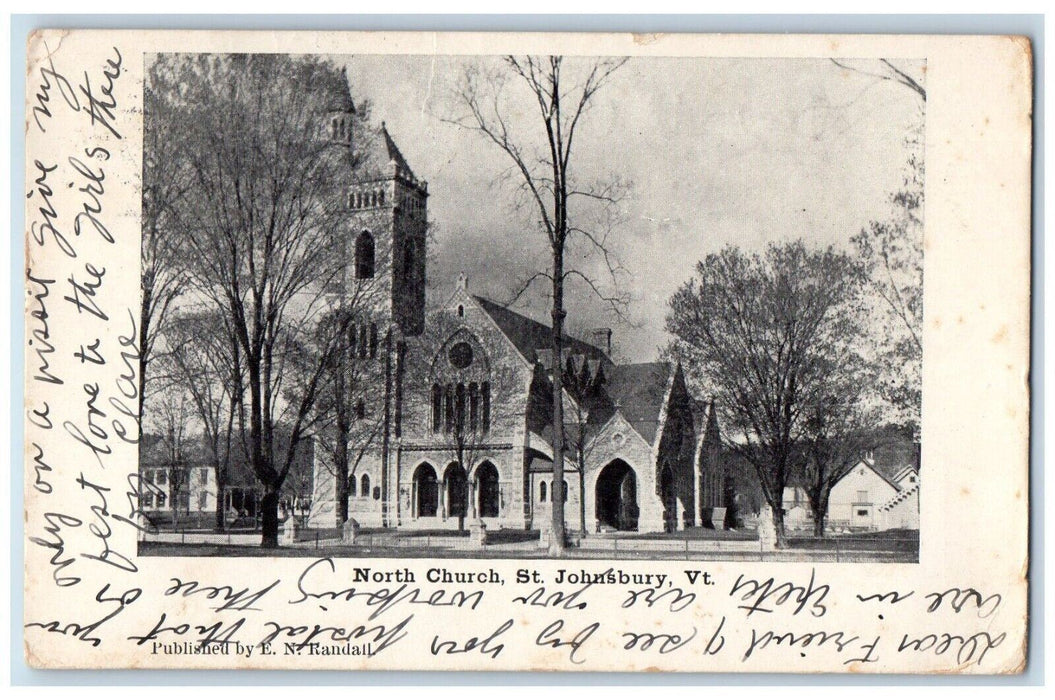 North Church, St. Johnsbury, Vt.
Published by E. N. Randall.
Dear Friend I see by your postal that you
are in are you working there or
only on a visit give my
best love to the girls there
from Clare